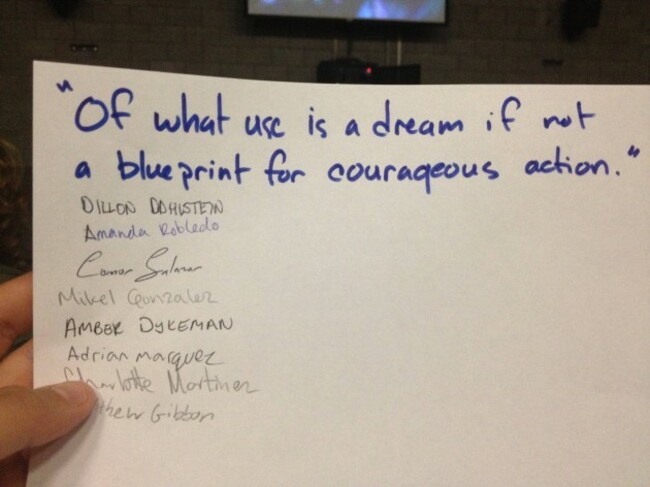 "Of what use is a dream if not
a blueprint for courageous action."
DILLON DAHLSTEIN
Amanda Robledo
Connor Salazar
Mikel Gonzalez
AMBER DYKEMAN
Adrian marquez
Charlotte Martinez
thew Gibbon